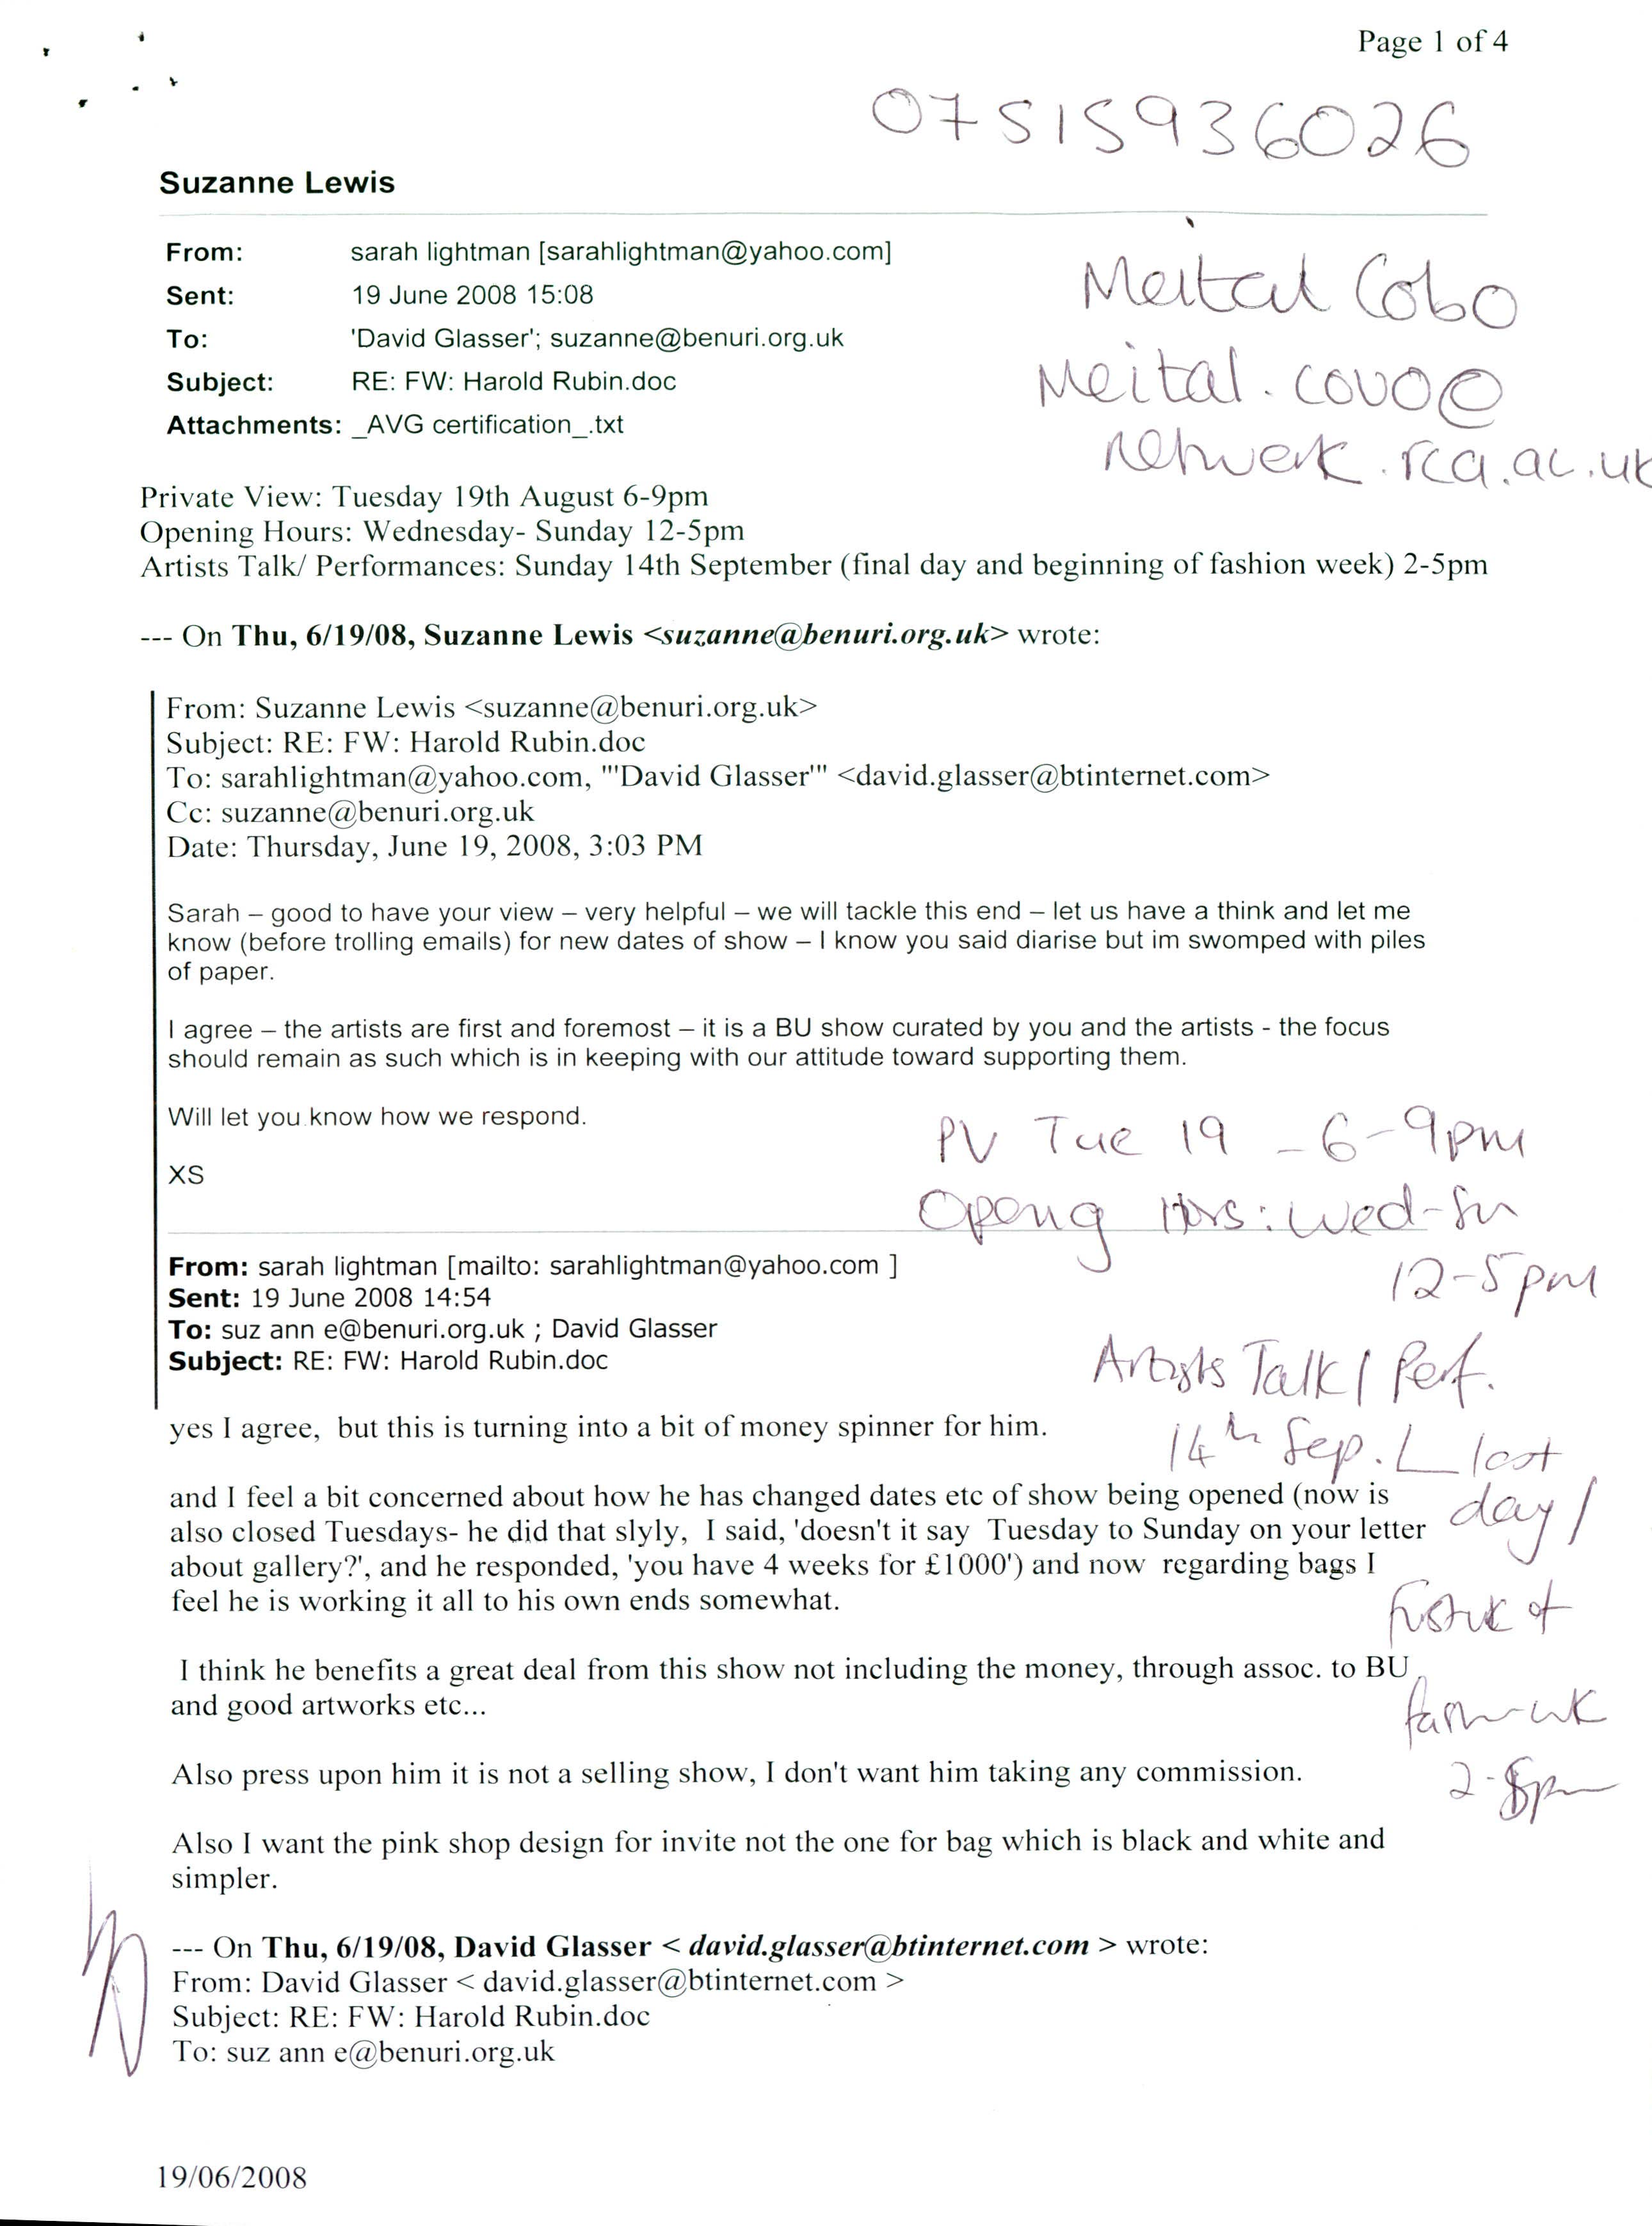 Page 1 of 4
07515936026
Suzanne Lewis
From: sarah lightman [sarahlightman@yahoo.com]
Sent: 19 June 2008 15:08
To: 'David Glasser'; suzanne@benuri.org.uk
Subject: RE: FW: Harold Rubin.doc
Attachments: _AVG certification_.txt
Meital Cobo
Meital.covo@
network.rca.ac.uk
Private View: Tuesday 19th August 6-9pm
Opening Hours: Wednesday- Sunday 12-5pm
Artists Talk/ Performances: Sunday 14th September (final day and beginning of fashion week) 2-5pm
--- On Thu, 6/19/08, Suzanne Lewis <suzanne@benuri.org.uk> wrote:
From: Suzanne Lewis <suzanne@benuri.org.uk>
Subject: RE: FW: Harold Rubin.doc
To: sarahlightman@yahoo.com, "'David Glasser'" <david.glasser@btinternet.com>
Cc: suzanne@benuri.org.uk
Date: Thursday, June 19, 2008, 3:03 PM
Sarah – good to have your view – very helpful – we will tackle this end – let us have a think and let me
know (before trolling emails) for new dates of show – I know you said diarise but im swomped with piles
of paper.
I agree – the artists are first and foremost – it is a BU show curated by you and the artists - the focus
should remain as such which is in keeping with our attitude toward supporting them.
Will let you know how we respond.
XS
PV Tue 19 - 6-9pm
Openg Hrs: Wed-Sun
12-5pm
Artists Talk / Perf.
14th Sep. last
day /
of
2-5pm
From: sarah lightman [mailto: sarahlightman@yahoo.com ]
Sent: 19 June 2008 14:54
To: suz ann e@benuri.org.uk ; David Glasser
Subject: RE: FW: Harold Rubin.doc
yes I agree,  but this is turning into a bit of money spinner for him.
and I feel a bit concerned about how he has changed dates etc of show being opened (now is
also closed Tuesdays- he did that slyly,  I said, 'doesn't it say  Tuesday to Sunday on your letter
about gallery?', and he responded, 'you have 4 weeks for £1000') and now  regarding bags I
feel he is working it all to his own ends somewhat.
I think he benefits a great deal from this show not including the money, through assoc. to BU
and good artworks etc...
Also press upon him it is not a selling show, I don't want him taking any commission.
Also I want the pink shop design for invite not the one for bag which is black and white and
simpler.
--- On Thu, 6/19/08, David Glasser < david.glasser@btinternet.com > wrote:
From: David Glasser < david.glasser@btinternet.com >
Subject: RE: FW: Harold Rubin.doc
To: suz ann e@benuri.org.uk
19/06/2008